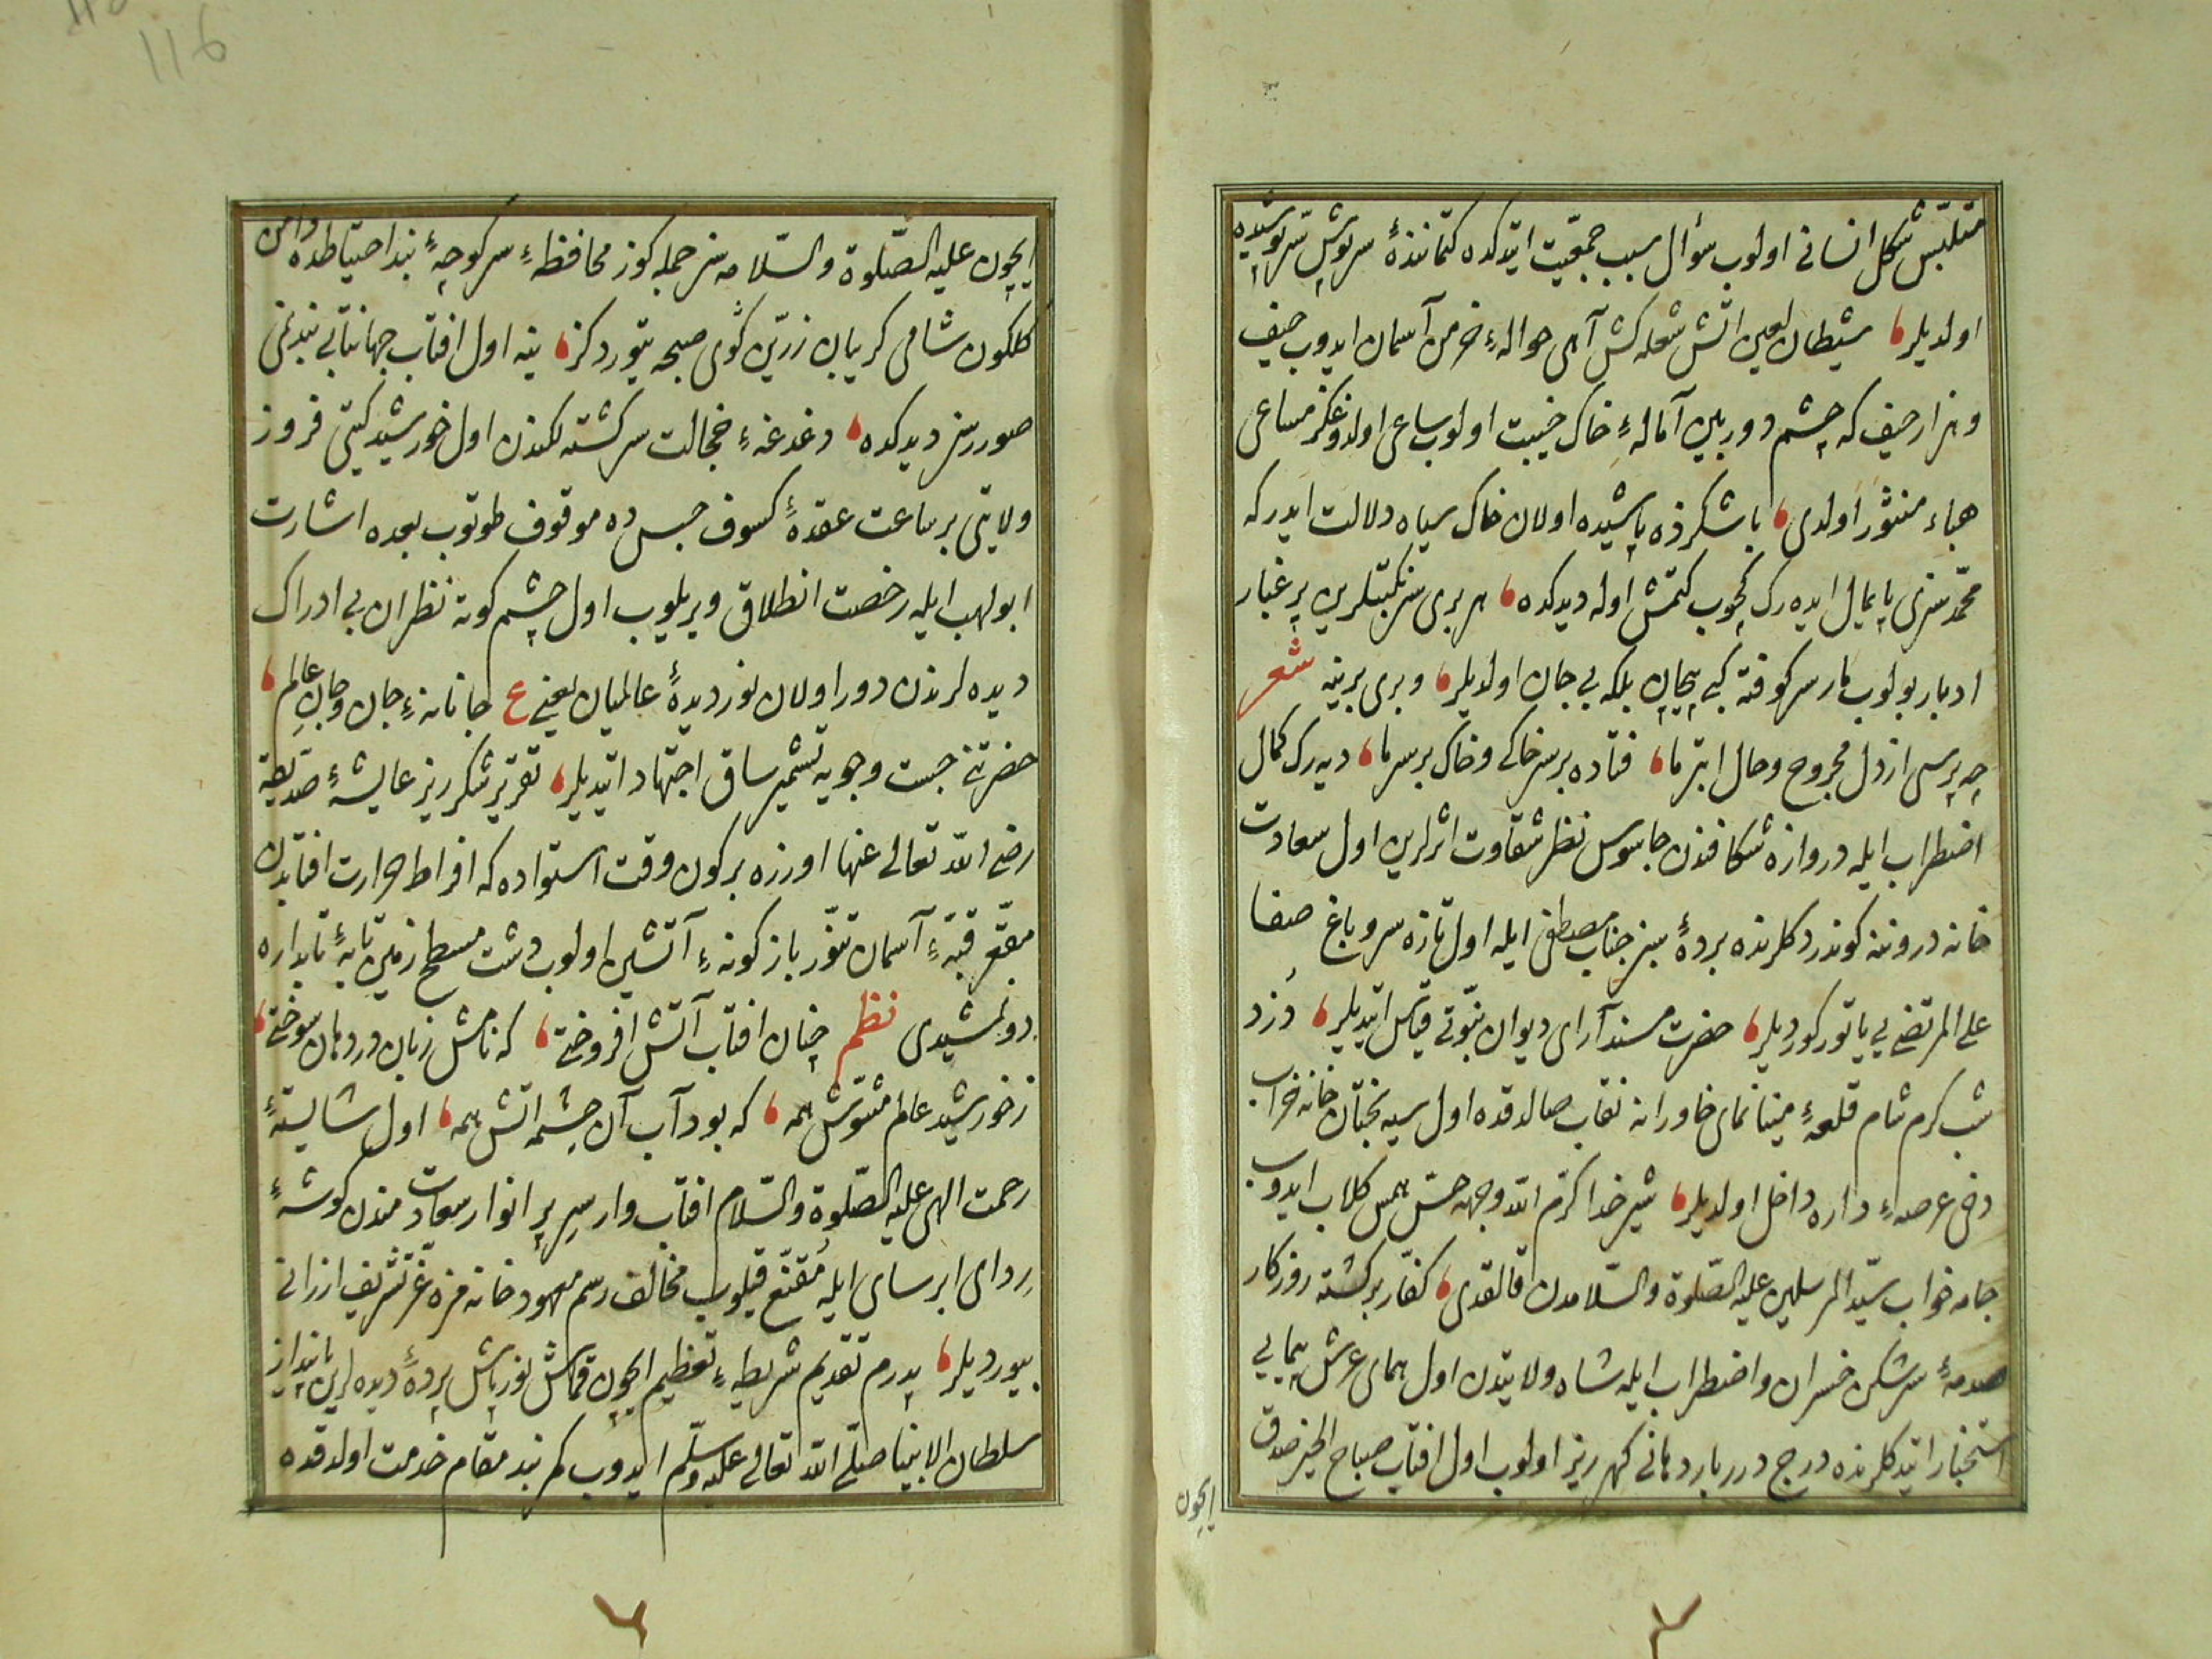 متلبّس شكل انسانی اولوب سؤال سبب جمعیت ایتدكده كتمانندهٔ سرپوش سرپوشیده
اولدیلر، شیطان لعین اتش شعله كش آهی حوالهٔ خرمن آسمان ایدوب حیف
و هزار حیف كه چشم دوربین آمالهٔ خاك خیبت اولوب ساعی اولدوغكز مساعی
هباء منثور اولدی، باشكزده پاشیده اولان خاك سیاه دلالت ایدر كه
محمّد سزی پایمال ایده رك كچوب كتمش اوله دیدكده، هر بری سر نكبتلرین پر غبار
ادبار بولوب مار سر كوفته كبی پیچان بلكه بی جان اولدیلر، و بری برینه شعر
چه پرسی از دل مجروح و حال ابتر ما، فتاده بر سر خاكی و خاك بر سر ما، دیه رك كمال
اضطراب ایله دروازه شكافندن جاسوس نظر شقاوت اثرلرین اول سعادت
خانه دروننه كوندردكلرنده بردهٔ سبز جناب مصطفی ایله اول تازه سرو باغ صفا
علی المرتضی یی یاتور كوردیلر، حضرت مسند آرای دیوان نبوّتی قیاس ایتدیلر، دزد
شب كرم شام قلعهٔ مینا نمای خاورانه نقاب صالدقده اول سیه بختان خانه خراب
دخی عرصهٔ داره داخل اولدیلر، شیر خدا كرّم الله وجهه حسّ همس كلاب ایدوب
جامه خواب سیّد المرسلین علیه الصّلوة والسّلامدن قالقدی، كفّار بركشته روزكار
صدمهٔ سرشكن خسران و اضطراب ایله شاه ولایتدن اول همای عرش پیمایی
استخبار ایتدكلرنده درج درربار دهانی كهر ریز اولوب اول افتاب صباح الخیر صدق
ایچون
116
ایچون علیه الصّلوة والسّلامه سز جمله كوز محافظهٔ سر كوچهٔ بند احتیاطده دامن
كلكون شامی كریبان زرّین كوی صبحه یتوردكز، ینه اول افتاب جهانتابی بندنمی
صوررسز دیدكده، دغدغهٔ خجالت سركشته لكندن اول خورشید كیتی فروز
ولایتی بر ساعت عقدهٔ كسوف حبسده موقوف طوتوب بعده اشارت
ابو لهب ایله رخصت انطلاق ویریلوب اول چشم كوته نظران بی ادراك
دیده لرندن دور اولان نور دیدهٔ عالمیان یعنی ع جانانهٔ جان و جان عالم،
حضرتنی جست و جویه تشمیر ساق اجتهاد ایتدیلر، تقریر شكر ریز عایشهٔ صدّیقه
رضی الله تعالی عنها اوزره بر كون وقت استواده كه افراط حرارت افتابدن
مقعّر قبّهٔ آسمان تنّور باز كونهٔ آتشین اولوب دشت مسطح زمین تابهٔ تابداره
دونمشیدی نظم چنان افتاب آتش افروختی، كه نامش زبان در دهان سوختی،
ز خورشید عالم مشوّش همه، كه بود آب آن چشمه اتش همه، اول شایستهٔ
رحمت الهی علیه الصّلوة والسّلام افتاب وار سر پر انوار سعادتمندن كوشهٔ
ردای ابر سای ایله مقنّع قیلوب مخالف رسم معهود خانه مزه عزّ تشریف ارزانی
بیوردیلر، پدرم تقدیم شریطهٔ تعظیم ایچون قماش نور پاش پردهٔ دیده لرین پایانداز
سلطان الانبیا صلّی الله تعالی علیه وسلّم ایدوب كمر بند مقام خدمت اولدقده